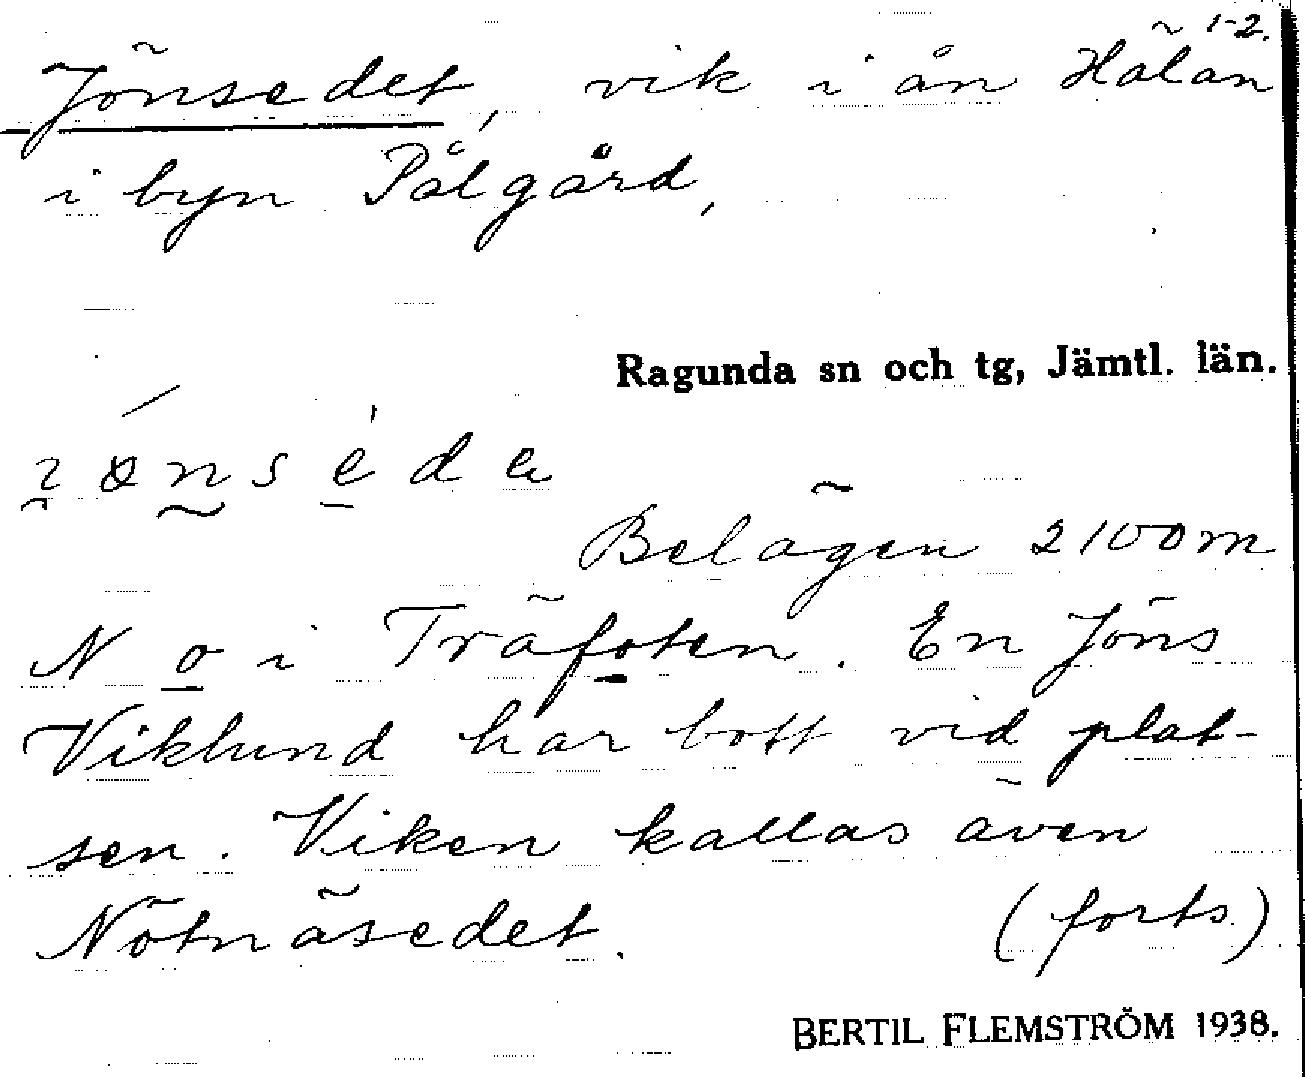 1-2.
Jönsedet, vik i ån Hälån
i byn Pålgård,
Ragunda sn och tg, Jämtl. län.
Belägen 2100 m
N o i Träfoten. En Jöns
Viklund har bott vid plat-
sen. Viken kallas även
Nötnäsedet. (forts.)
BERTIL FLEMSTRÖM 1938.